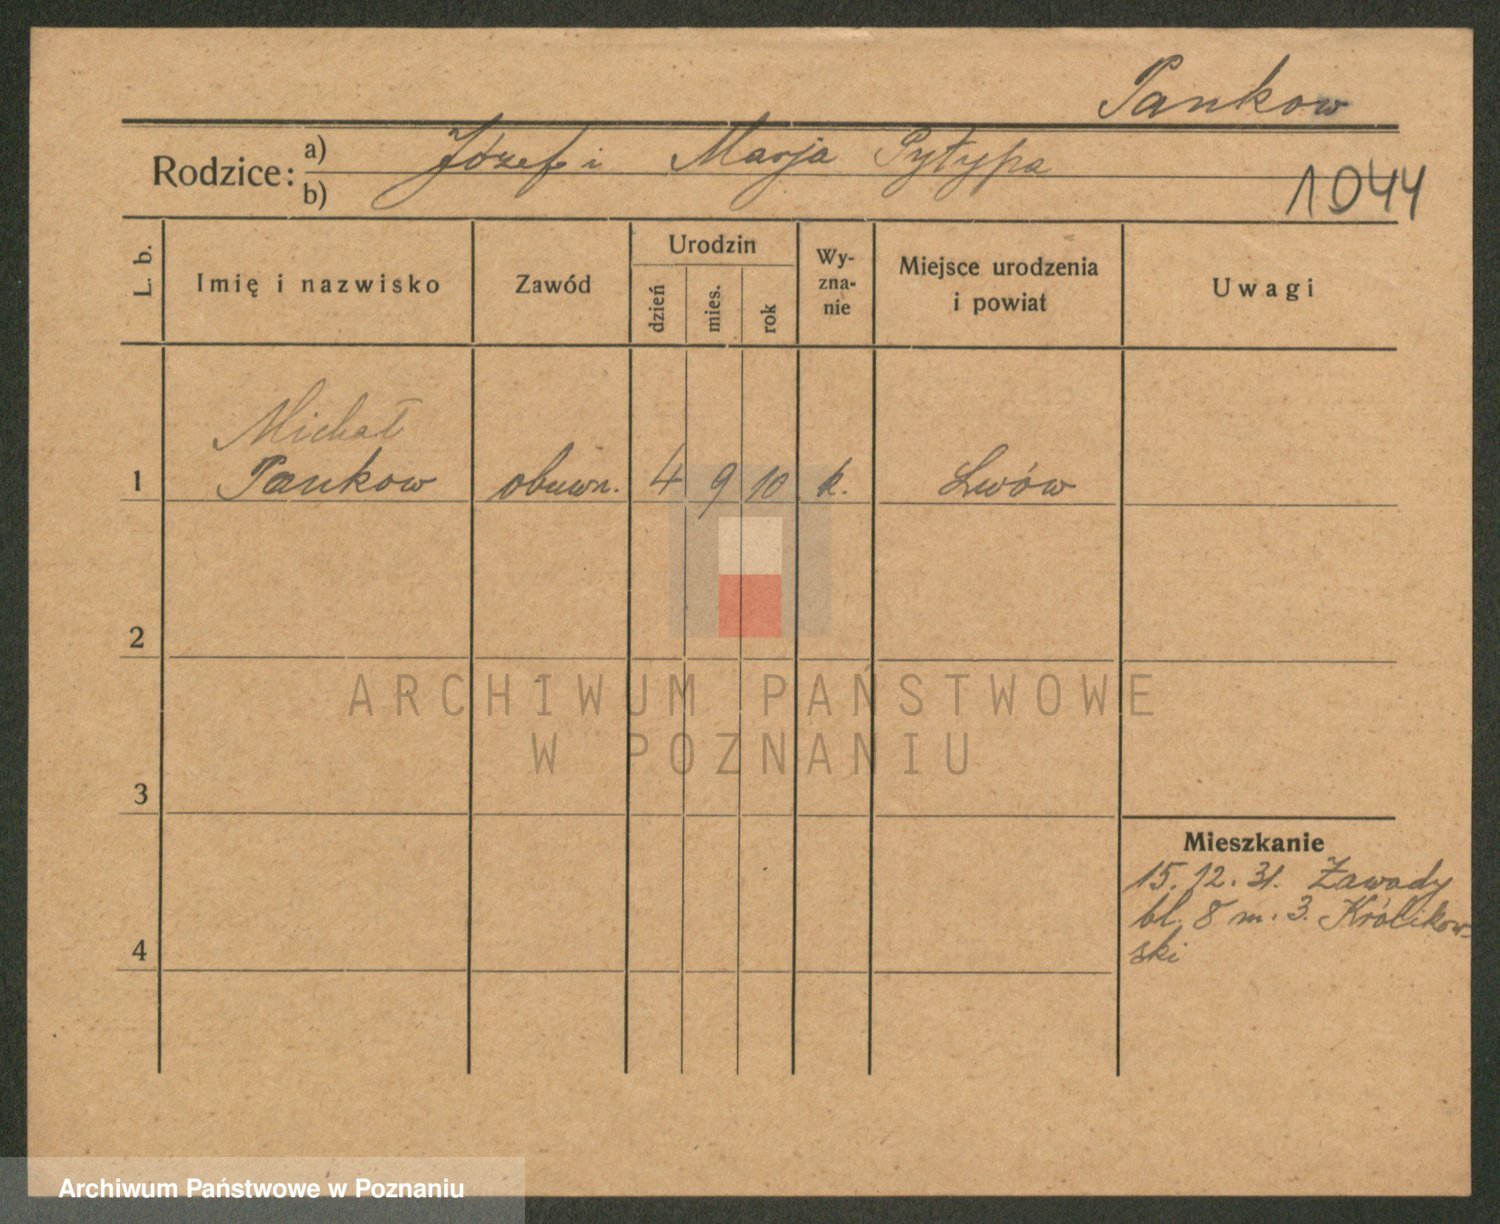 Pankow
Rodzice: a) Józef i Marja Pytypa
b)
1044
L. b. Imię i nazwisko Zawód Urodzin dzień mies. rok Wy-zna-nie Miejsce urodzenia i powiat Uwagi
Michał
1 Pankow obuwn. 4 9 10 k. Lwów
2
ARCHIWUM PAŃSTWOWE
W POZNANIU
3
Mieszkanie
15.12.31. Zawady
bl. 8 m. 3. Królikow-
ski
4
Archiwum Państwowe w Poznaniu